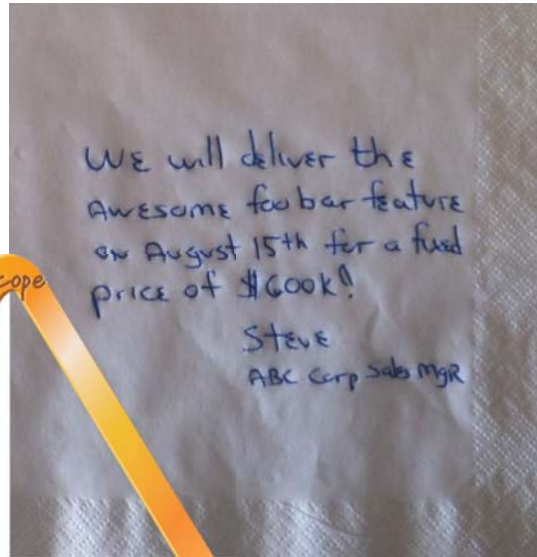 WE will deliver the
Awesome foobar feature
on August 15th for a fixed
price of $600k!
Steve
ABC Corp Sales MgR
cope